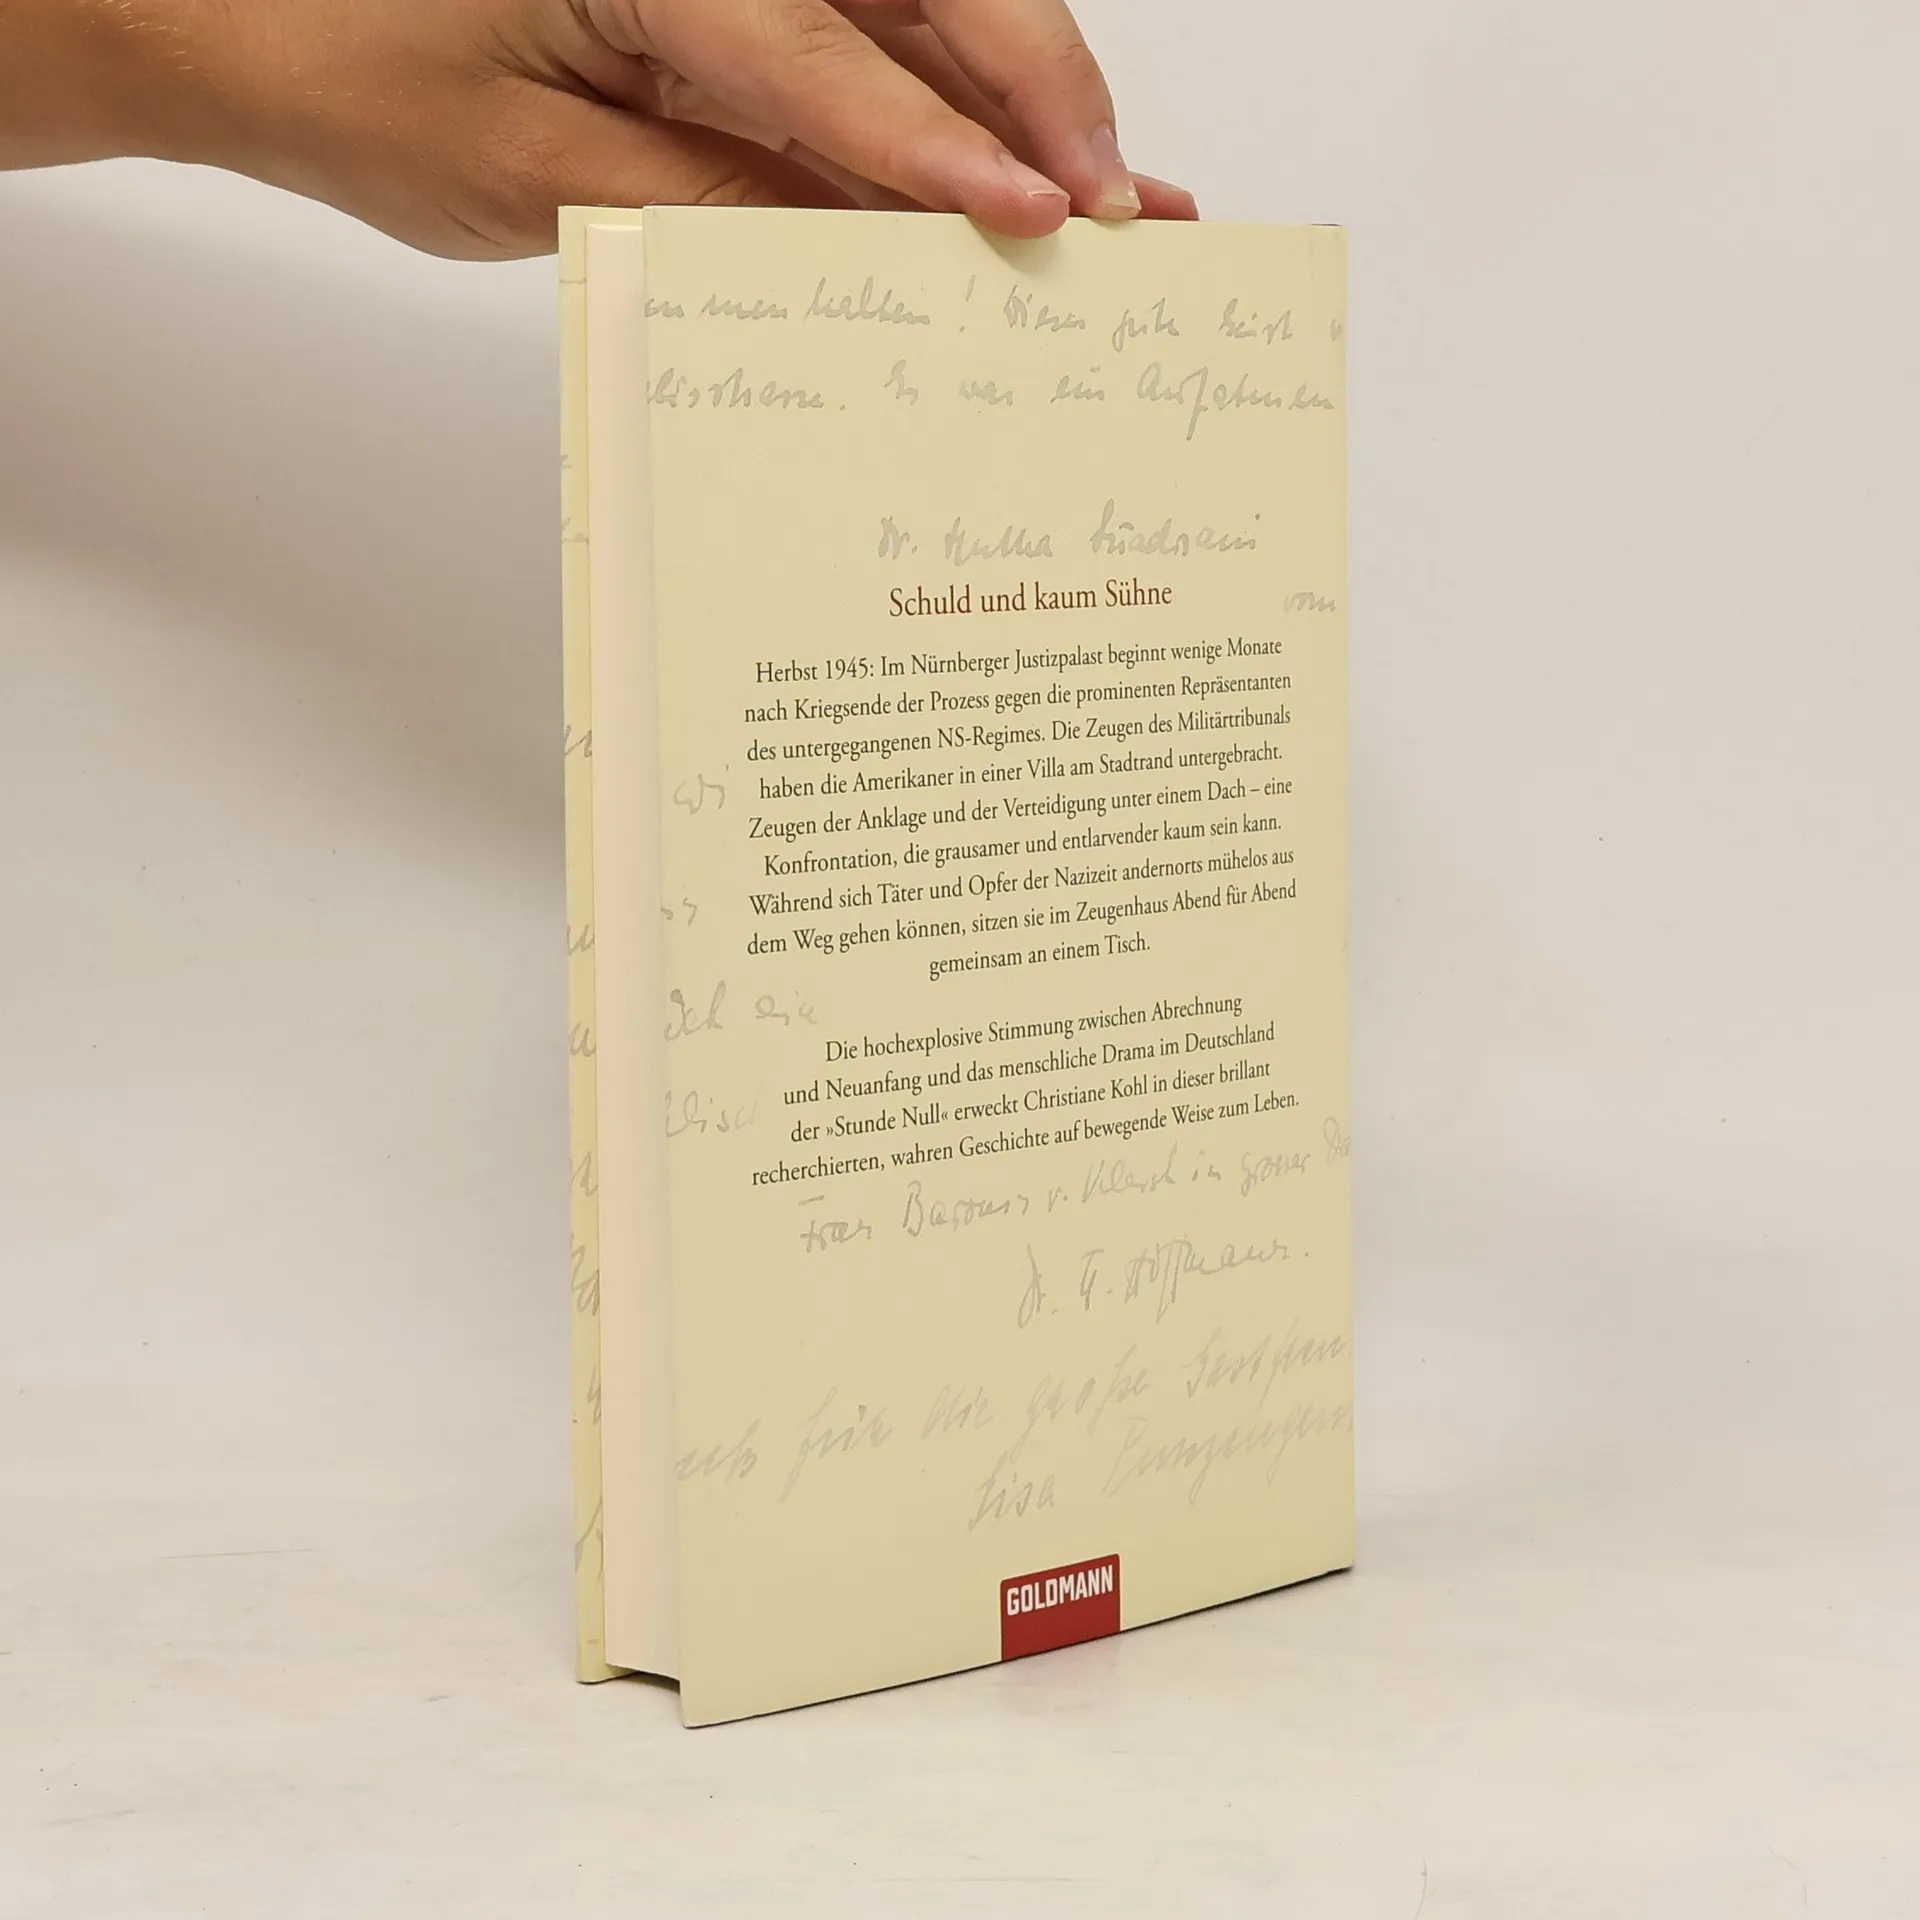 halten! Dieser gute Geist
Es war ein Aufatmen
Dr.
Schuld und kaum Sühne
vom
Herbst 1945: Im Nürnberger Justizpalast beginnt wenige Monate
nach Kriegsende der Prozess gegen die prominenten Repräsentanten
des untergegangenen NS-Regimes. Die Zeugen des Militärtribunals
haben die Amerikaner in einer Villa am Stadtrand untergebracht.
Zeugen der Anklage und der Verteidigung unter einem Dach – eine
Konfrontation, die grausamer und entlarvender kaum sein kann.
Während sich Täter und Opfer der Nazizeit andernorts mühelos aus
dem Weg gehen können, sitzen sie im Zeugenhaus Abend für Abend
gemeinsam an einem Tisch.
Die hochexplosive Stimmung zwischen Abrechnung
und Neuanfang und das menschliche Drama im Deutschland
der »Stunde Null« erweckt Christiane Kohl in dieser brillant
recherchierten, wahren Geschichte auf bewegende Weise zum Leben.
Frau Baronin v. in grosser
Dr. H. Hoffmann.
für die große
Lisa
GOLDMANN